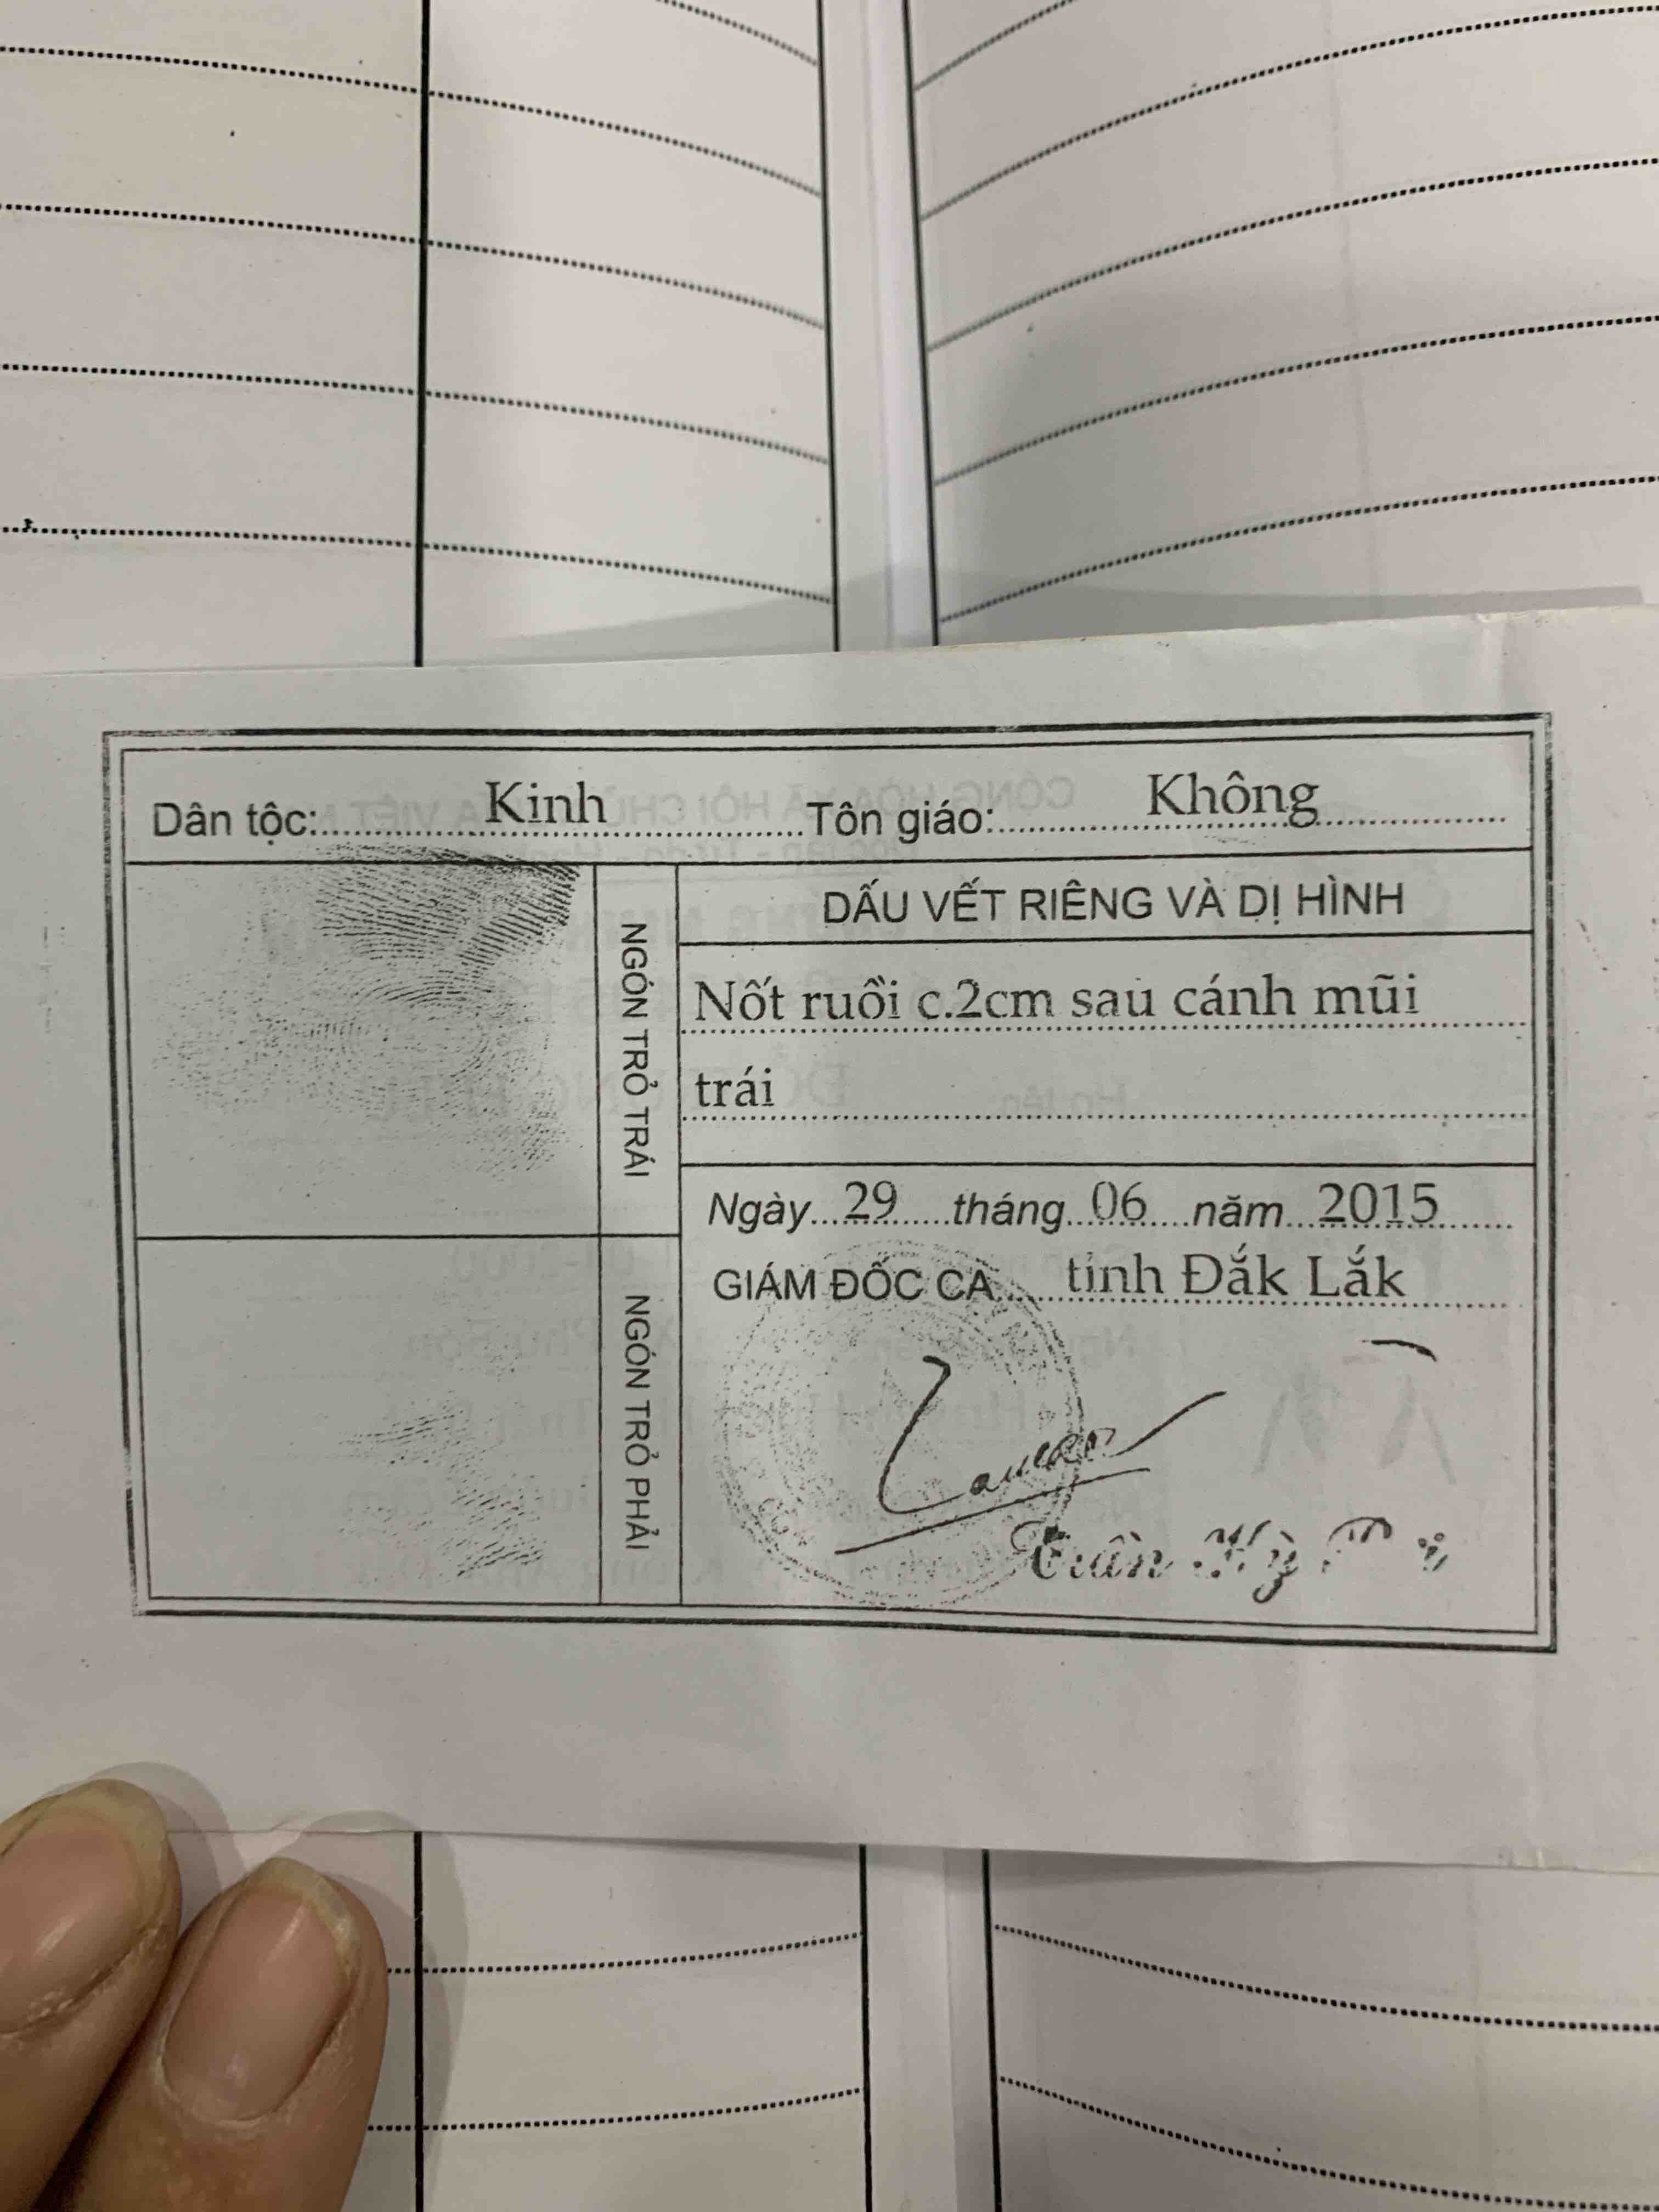 Dân tộc: Kinh Tôn giáo: Không
NGÓN TRỎ TRÁI
DẤU VẾT RIÊNG VÀ DỊ HÌNH
Nốt ruồi c.2cm sau cánh mũi
trái
NGÓN TRỎ PHẢI
Ngày 29 tháng 06 năm 2015
GIÁM ĐỐC CA tỉnh Đắk Lắk
Trần Kỳ